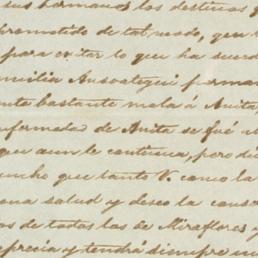 sus hermanos los destinos
prometido de tal modo, que
para evitar lo que ha suced
milia Ansoategui perman
nta bastante mala á Anita
nfermedad de Anita se fué
que aun le continua, pero di
ucho que tanto V. como la
ena salud y deseo la conser
os de todas las de Miraflores y
aprecia y tendrá siempre un